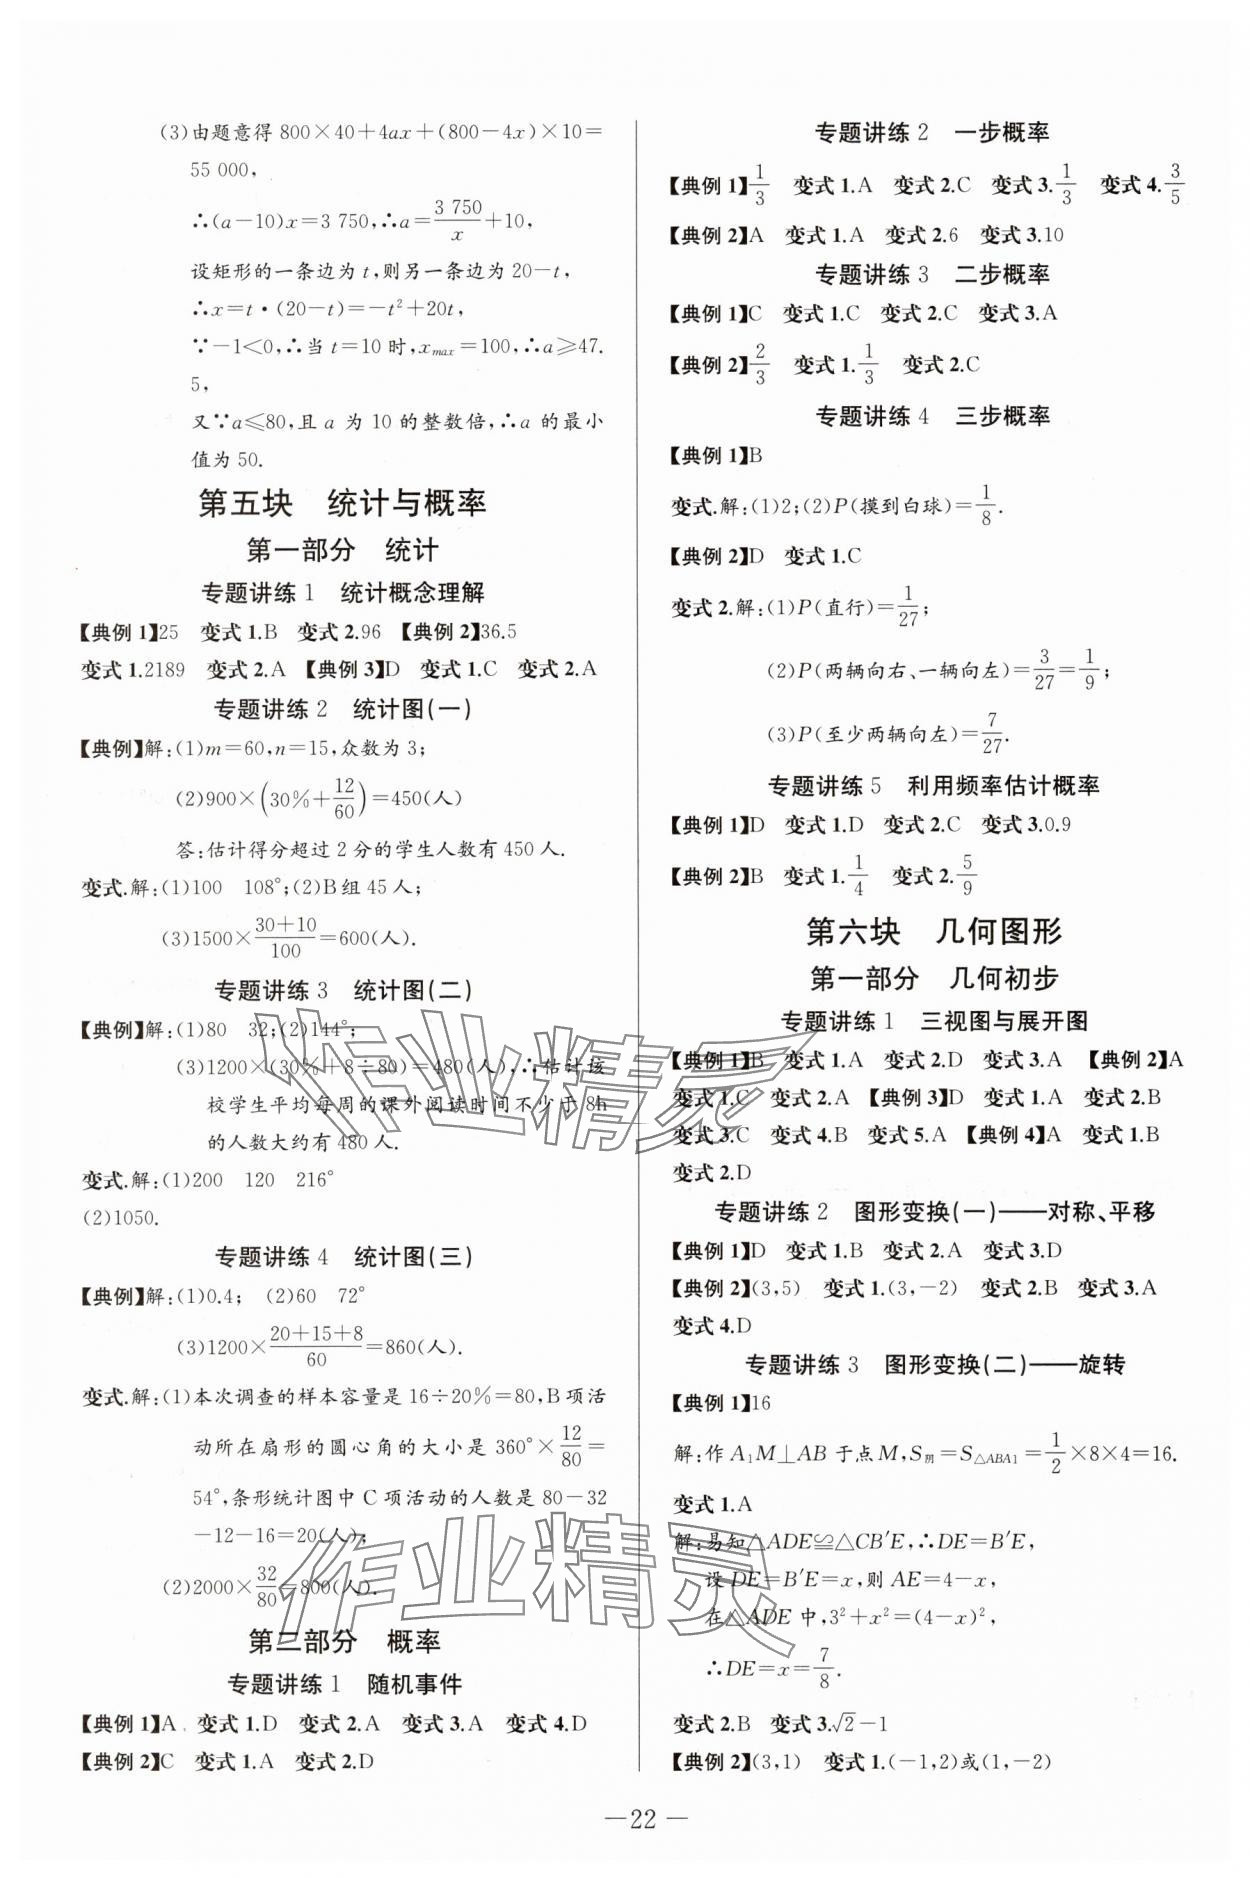 (3)由题意得 800×40+4ax+(800-4x)×10=
55 000,
∴(a-10)x=3 750,∴a=3 750/x+10,
设矩形的一条边为 t,则另一条边为 20-t,
∴x=t·(20-t)=-t²+20t,
∵-1<0,∴当 t=10 时,xmax=100,∴a≥47.
5,
又∵a≤80,且 a 为 10 的整数倍,∴a 的最小
值为 50.
第五块 统计与概率
第一部分 统计
专题讲练 1 统计概念理解
【典例 1】25 变式 1.B 变式 2.96 【典例 2】36.5
变式 1.2189 变式 2.A 【典例 3】D 变式 1.C 变式 2.A
专题讲练 2 统计图(一)
【典例】解:(1)m=60,n=15,众数为 3;
(2)900×(30%+12/60)=450(人)
答:估计得分超过 2 分的学生人数有 450 人.
变式.解:(1)100 108°;(2)B组 45 人;
(3)1500×(30+10)/100=600(人).
专题讲练 3 统计图(二)
【典例】解:(1)80 32;(2)144°;
(3)1200×(30%+8÷80)=480(人),∴估计该
校学生平均每周的课外阅读时间不少于 8h
的人数大约有 480 人.
变式.解:(1)200 120 216°
(2)1050.
专题讲练 4 统计图(三)
【典例】解:(1)0.4; (2)60 72°
(3)1200×(20+15+8)/60=860(人).
变式.解:(1)本次调查的样本容量是 16÷20%=80,B 项活
动所在扇形的圆心角的大小是 360°×12/80=
54°,条形统计图中 C 项活动的人数是 80-32
-12-16=20(人);
(2)2000×32/80=800(人).
第二部分 概率
专题讲练 1 随机事件
【典例 1】A 变式 1.D 变式 2.A 变式 3.A 变式 4.D
【典例 2】C 变式 1.A 变式 2.D
专题讲练 2 一步概率
【典例 1】1/3 变式 1.A 变式 2.C 变式 3.1/3 变式 4.3/5
【典例 2】A 变式 1.A 变式 2.6 变式 3.10
专题讲练 3 二步概率
【典例 1】C 变式 1.C 变式 2.C 变式 3.A
【典例 2】2/3 变式 1.1/3 变式 2.C
专题讲练 4 三步概率
【典例 1】B
变式.解:(1)2;(2)P(摸到白球)=1/8.
【典例 2】D 变式 1.C
变式 2.解:(1)P(直行)=1/27;
(2)P(两辆向右、一辆向左)=3/27=1/9;
(3)P(至少两辆向左)=7/27.
专题讲练 5 利用频率估计概率
【典例 1】D 变式 1.D 变式 2.C 变式 3.0.9
【典例 2】B 变式 1.1/4 变式 2.5/9
第六块 几何图形
第一部分 几何初步
专题讲练 1 三视图与展开图
【典例 1】B 变式 1.A 变式 2.D 变式 3.A 【典例 2】A
变式 1.C 变式 2.A 【典例 3】D 变式 1.A 变式 2.B
变式 3.C 变式 4.B 变式 5.A 【典例 4】A 变式 1.B
变式 2.D
专题讲练 2 图形变换(一)——对称、平移
【典例 1】D 变式 1.B 变式 2.A 变式 3.D
【典例 2】(3,5) 变式 1.(3,-2) 变式 2.B 变式 3.A
变式 4.D
专题讲练 3 图形变换(二)——旋转
【典例 1】16
解:作 A₁M⊥AB 于点 M,S阴=S△ABA1=1/2×8×4=16.
变式 1.A
解:易知△ADE≌△CB′E,∴DE=B′E,
设 DE=B′E=x,则 AE=4-x,
在△ADE 中,3²+x²=(4-x)²,
∴DE=x=7/8.
变式 2.B 变式 3.√2-1
【典例 2】(3,1) 变式 1.(-1,2)或(1,-2)
—22—
作业精灵
作业精灵